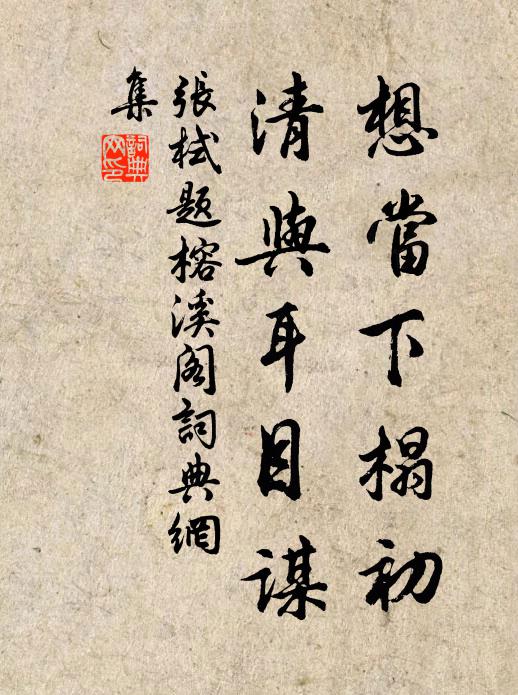 想當下榻初
清與耳目謀
張栻題榕溪阁詞典網
集
詞典
网印